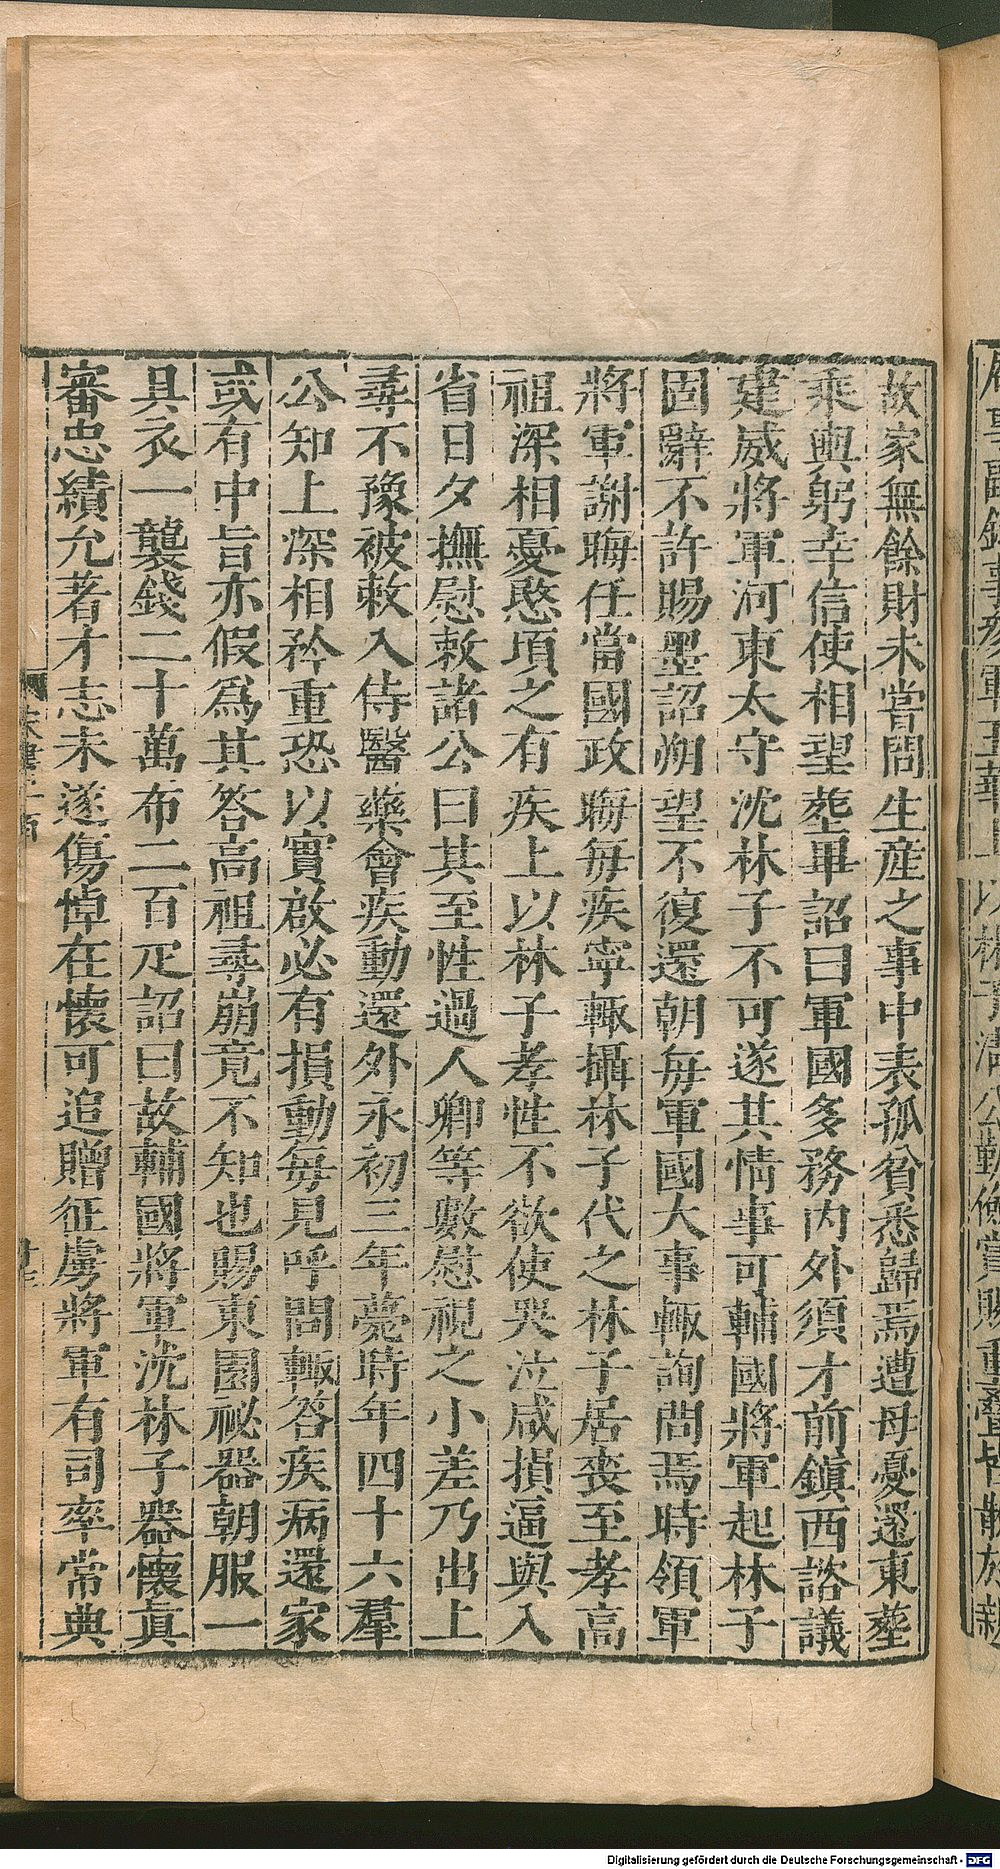 故家無餘財未嘗問生産之事中表孤貧悉歸焉遭母憂還東葬
乘輿躬幸信使相望葬畢詔曰軍國多務內外須才前鎮西諮議
建威將軍河東太守沈林子不可遂其情事可輔國將軍起林子
固辭不許賜墨詔朔望不復還朝每軍國大事輙詢問焉時領軍
將軍謝晦任當國政晦每疾寧輙攝林子代之林子居喪至孝高
祖深相憂愍頃之有疾上以林子孝性不欲使哭泣咸損逼與入
省日夕撫慰敕諸公曰其至性過人卿等數慰視之小差乃出上
尋不豫被敕入侍醫藥會疾動還外永初三年薨時年四十六羣
公知上深相矜重恐以實啟必有損動每見呼問輙答疾病還家
或有中旨亦假爲其答高祖尋崩竟不知也賜東園祕器朝服一
具衣一襲錢二十萬布二百疋詔曰故輔國將軍沈林子器懷眞
審忠績允著才志未遂傷悼在懷可追贈征虜將軍有司率常典
Digitalisierung gefördert durch die Deutsche Forschungsgemeinschaft - DFG